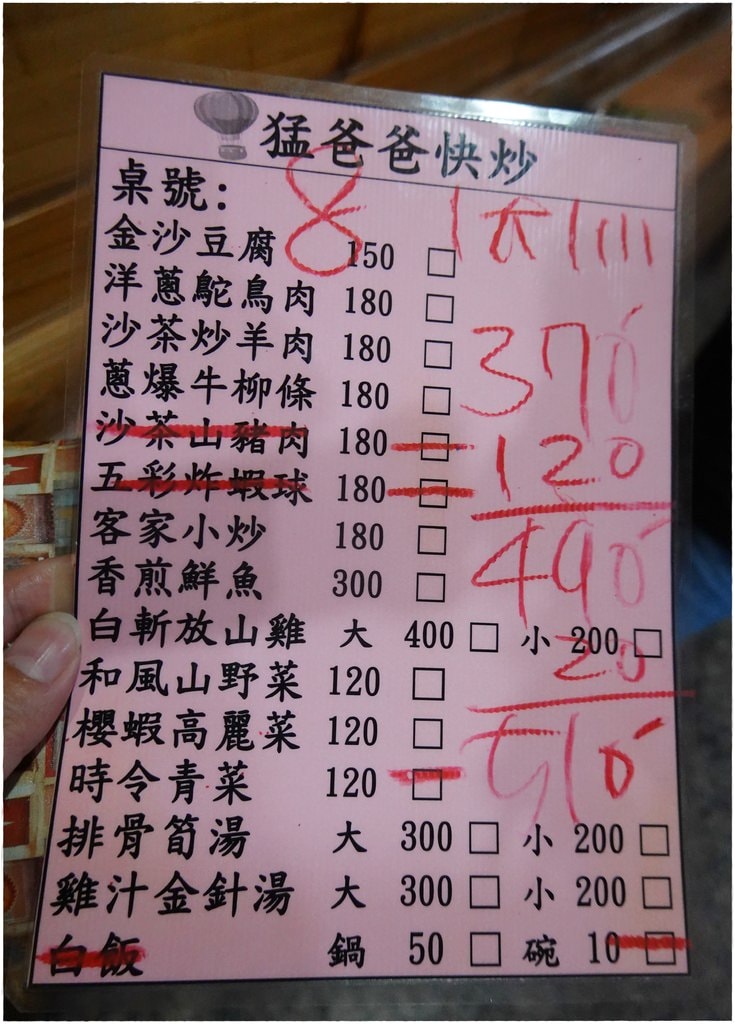 猛爸爸快炒
桌號: 8
金沙豆腐 150 □
洋蔥鴕鳥肉 180 □
沙茶炒羊肉 180 □
蔥爆牛柳條 180 □
沙茶山豬肉 180 □
五彩炸蝦球 180 □
客家小炒 180 □
香煎鮮魚 300 □
白斬放山雞 大 400 □ 小 200 □
和風山野菜 120 □
櫻蝦高麗菜 120 □
時令青菜 120 □
排骨筍湯 大 300 □ 小 200 □
雞汁金針湯 大 300 □ 小 200 □
白飯 鍋 50 □ 碗 10 □
370
120
490
20
510